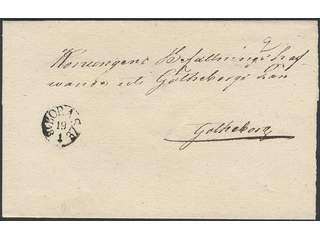 Konungens Befallningshaf
wande uti Götheborgs Län
Götheborg
19
1